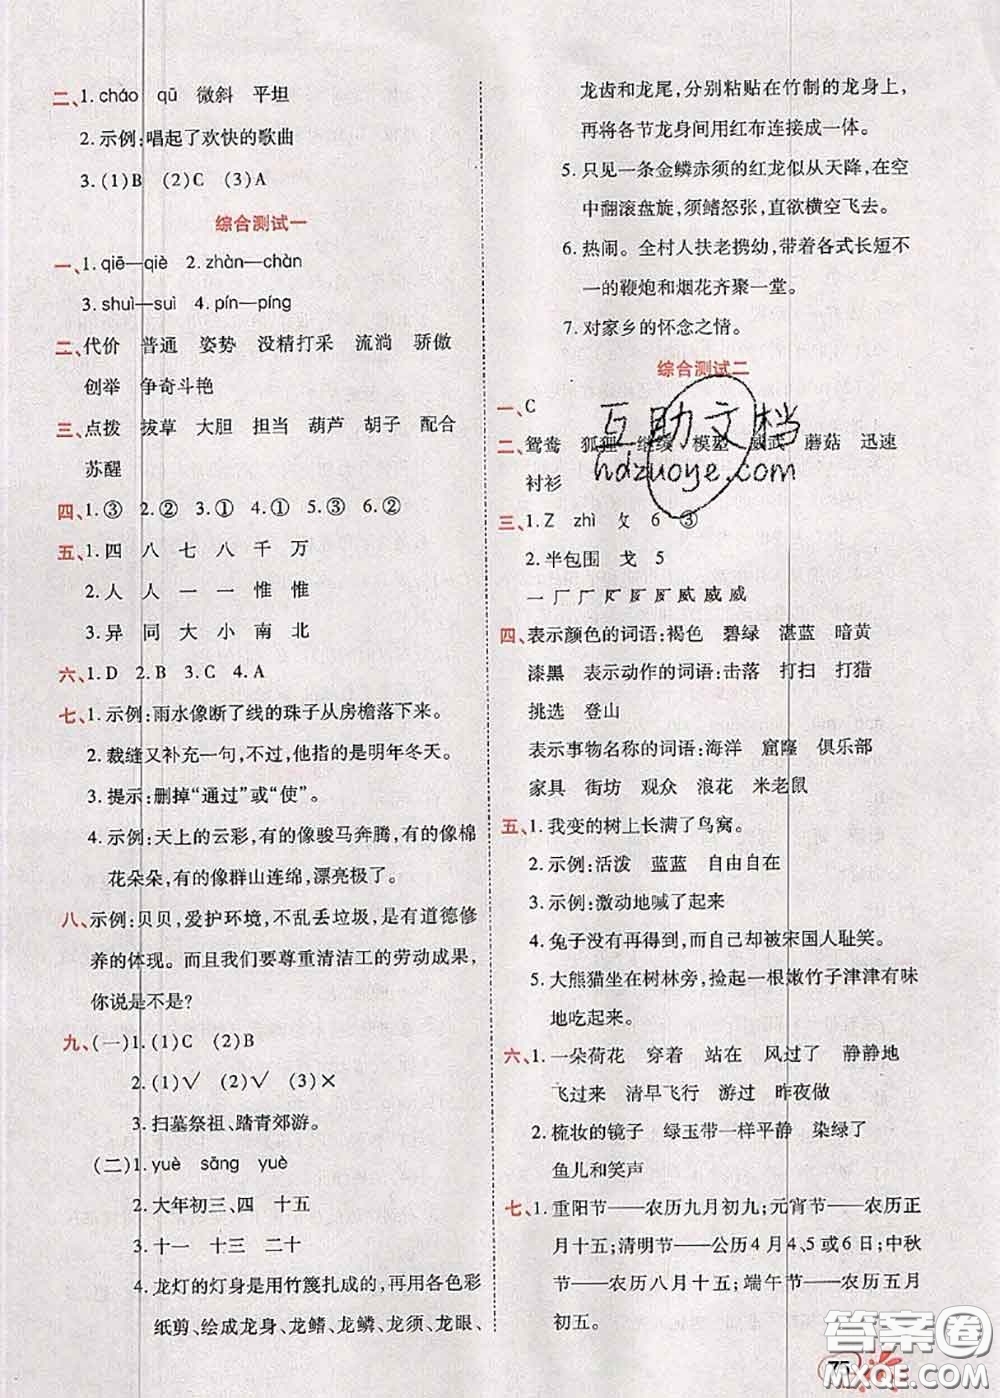 二、1. cháo　qū　微斜　平坦
2. 示例:唱起了欢快的歌曲
3. (1)B　(2)C　(3)A
综合测试一
一、1. qiē—qiè　2. zhàn—chàn
3. shuì—suì　4. pín—píng
二、代价　普通　姿势　没精打采　流淌　骄傲
创举　争奇斗艳
三、点拨　拔草　大胆　担当　葫芦　胡子　配合
苏醒
四、1. ③　2. ②　3. ①　4. ①　5. ③　6. ②
五、1. 四　八　七　八　千　万
2. 人　人　一　一　惟　惟
3. 异　同　大　小　南　北
六、1. D　2. B　3. C　4. A
七、1. 示例:雨水像断了线的珠子从房檐落下来。
2. 裁缝又补充一句,不过,他指的是明年冬天。
3. 提示:删掉“通过”或“使”。
4. 示例:天上的云彩,有的像骏马奔腾,有的像棉
花朵朵,有的像群山连绵,漂亮极了。
八、示例:贝贝,爱护环境,不乱丢垃圾,是有道德修
养的体现。而且我们要尊重清洁工的劳动成果,
你说是不是?
九、(一)1. (1)C　(2)B
2. (1)√　(2)√　(3)×
3. 扫墓祭祖、踏青郊游。
(二)1. yuè　sāng　yuè
2. 大年初三、四　十五
3. 十一　十三　二十
4. 龙灯的灯身是用竹篾扎成的,再用各色彩
纸剪、绘成龙身、龙鳍、龙鳞、龙须、龙眼、
龙齿和龙尾,分别粘贴在竹制的龙身上,
再将各节龙身间用红布连接成一体。
5. 只见一条金鳞赤须的红龙似从天降,在空
中翻滚盘旋,须鳍怒张,直欲横空飞去。
6. 热闹。全村人扶老携幼,带着各式长短不
一的鞭炮和烟花齐聚一堂。
7. 对家乡的怀念之情。
综合测试二
一、C
二、鸳鸯　狐狸　继续　模型　威武　蘑菇　迅速
衬衫
互助文档
hdzuoye.com
三、1. Z　zhì　攵　6　③
2. 半包围　戈　5
四、表示颜色的词语:褐色　碧绿　湛蓝　暗黄
漆黑　表示动作的词语:击落　打扫　打猎
挑选　登山
表示事物名称的词语:海洋　窟窿　俱乐部
家具　街坊　观众　浪花　米老鼠
五、1. 我变的树上长满了鸟窝。
2. 示例:活泼　蓝蓝　自由自在
3. 示例:激动地喊了起来
4. 兔子没有再得到,而自己却被宋国人耻笑。
5. 大熊猫坐在树林旁,捡起一根嫩竹子津津有味
地吃起来。
六、1. 一朵荷花　穿着　站在　风过了　静静地
飞过来　清早飞行　游过　昨夜做
2. 梳妆的镜子　绿玉带一样平静　染绿了
鱼儿和笑声
七、1. 重阳节——农历九月初九;元宵节——农历正
月十五;清明节——公历 4 月 4、5 或 6 日;中秋
节——农历八月十五;端午节——农历五月
初五。
75
答案圈
MXQE.COM